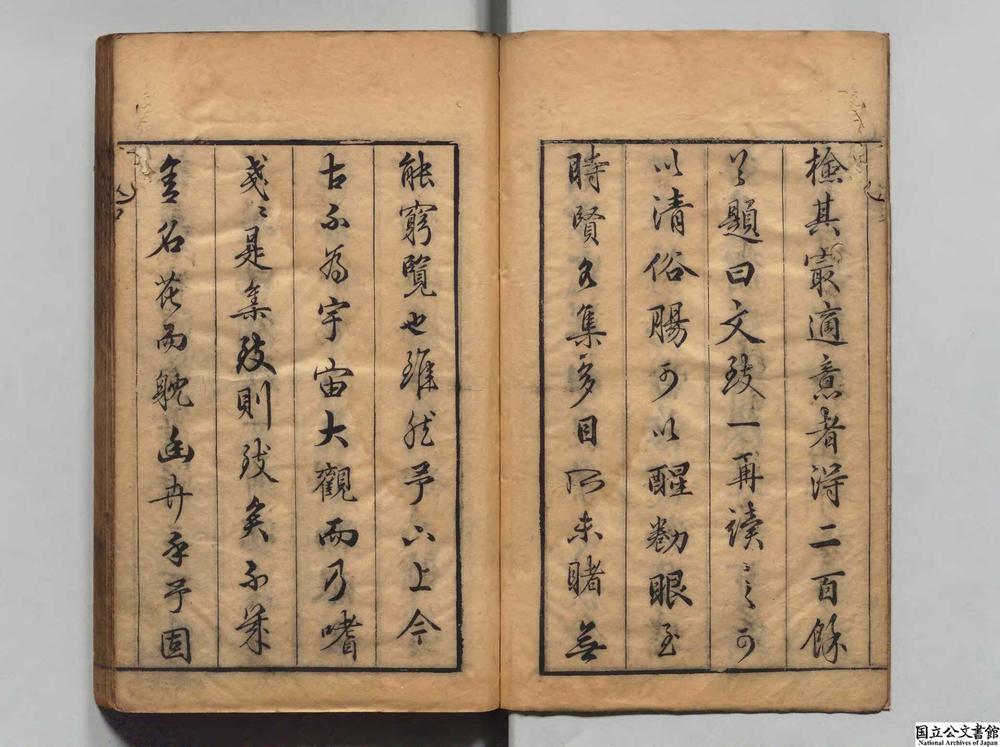 檢其㝡適意者得二百餘
首題曰文致一再讀之可
以清俗腸可以醒勌眼至
時賢名集多目所未睹無
能窮覽也雖然予上下今
古不爲宇宙大觀而乃嗜
戔戔是集致則致矣不幾
舍名花而躭幽卉乎予固
国立公文書館
National Archives of Japan